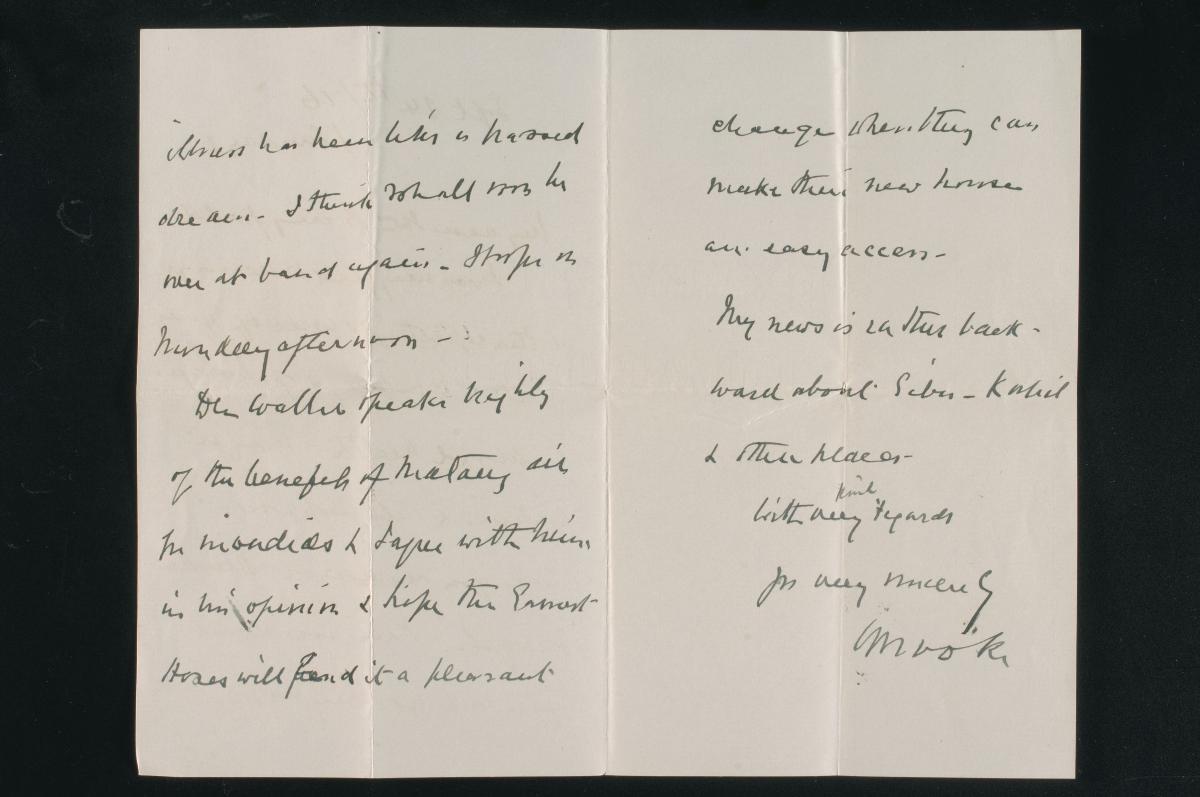 illness has been like a passed
dream - I think I shall soon be
over at band again - I hope on
Monday afternoon -
Dr Waller speaks highly
of the benefits of Matang air
for invalids & I agree with him
in his opinion & hope the Ernest
Hoses will find it a pleasant
change when they can
make their new house
an easy access -
My news is rather back -
ward about Sibu - Kapit
& other places -
kind
With very regards
Yrs very sincerely
CBrooke